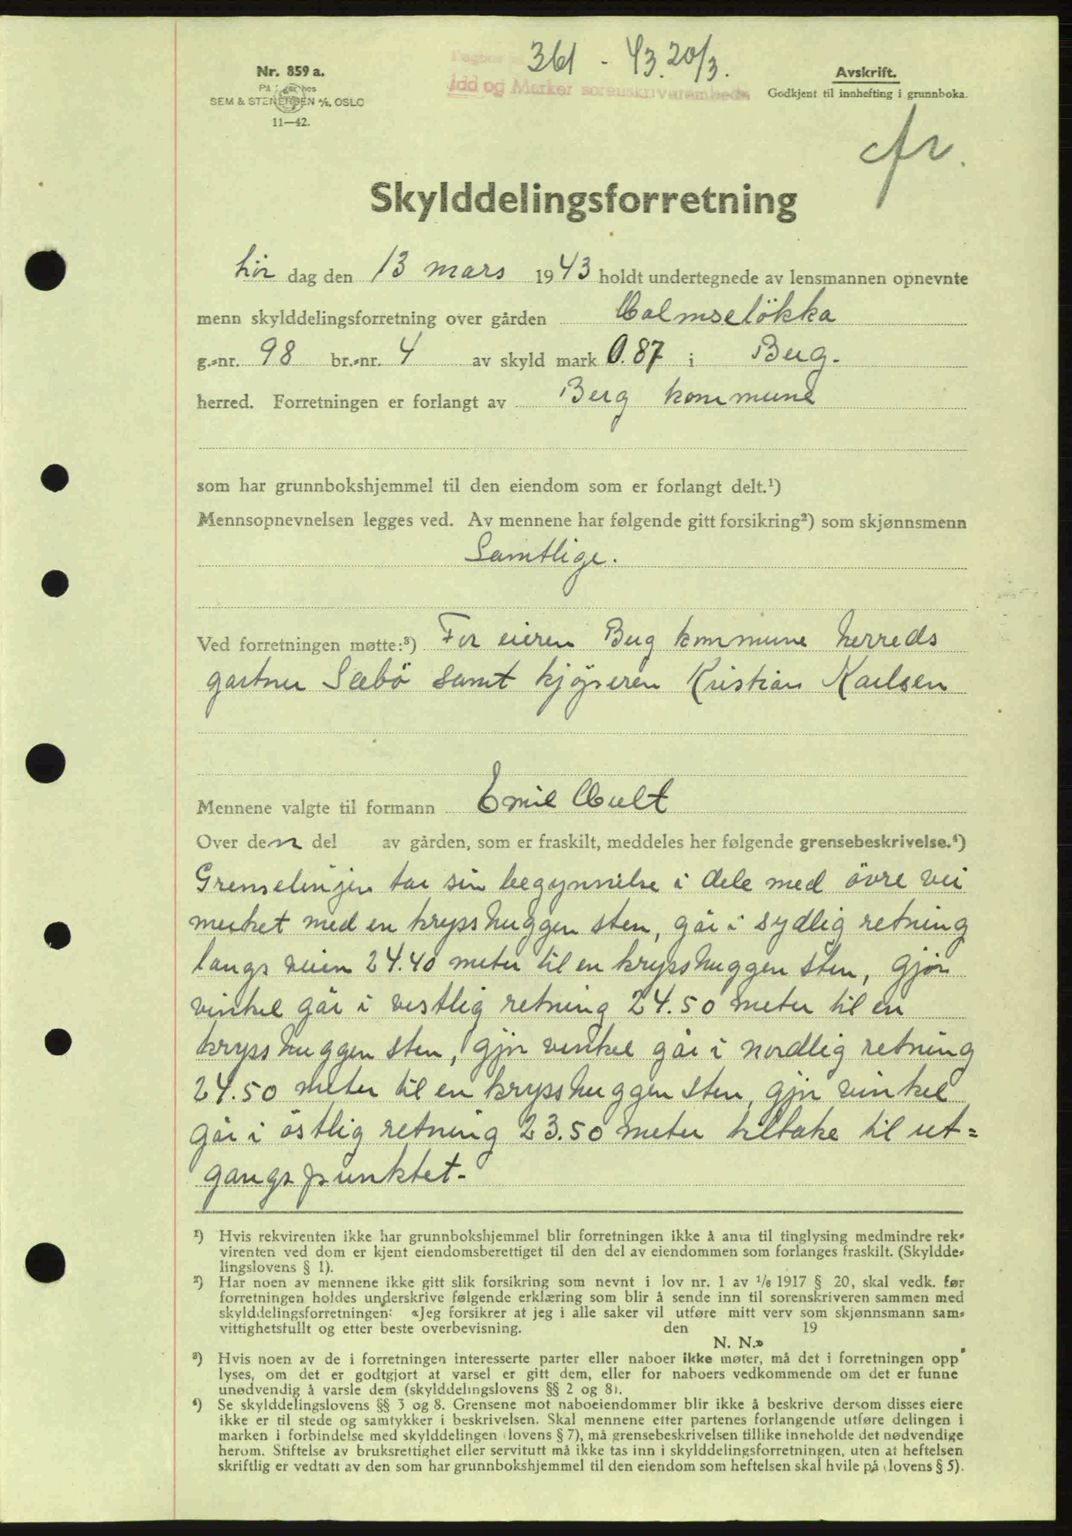 361 - 43. 20/3.
Nr. 859 a.
SEM & STENERSEN A/S. OSLO
11—42.
Dagbok
Idd og Marker sorenskriverembede
Avskrift.
Godkjent til innhefting i grunnboka.
Skylddelingsforretning
Lör dag den 13 mars 1943 holdt undertegnede av lensmannen opnevnte
menn skylddelingsforretning over gården Holmseløkka
g.-nr. 98 br.-nr. 4 av skyld mark 0.87 i Berg.
herred. Forretningen er forlangt av Berg kommune
som har grunnbokshjemmel til den eiendom som er forlangt delt.¹)
Mennsopnevnelsen legges ved. Av mennene har følgende gitt forsikring²) som skjønnsmenn
Samtlige.
Ved forretningen møtte:³) For eieren Berg kommune herreds
gartner Sæbö samt kjøperen Kristian Karlsen
Mennene valgte til formann Emil Hult
Over den del av gården, som er fraskilt, meddeles her følgende grensebeskrivelse.⁴)
Grenselinjen tar sin begynnelse i dele med övre vei
merket med en krysshuggen sten, går i sydlig retning
langs veien 24.40 meter til en krysshuggen sten, gjör
vinkel går i vestlig retning 24.50 meter til en
krysshuggen sten, gjör vinkel går i nordlig retning
24.50 meter til en krysshuggen sten, gjör vinkel
går i östlig retning 23.50 meter tilbake til ut=
gangspunktet-
¹) Hvis rekvirenten ikke har grunnbokshjemmel blir forretningen ikke å anta til tinglysing medmindre rek-
virenten ved dom er kjent eiendomsberettiget til den del av eiendommen som forlanges fraskilt. (Skyldde-
lingslovens § 1).
²) Har noen av mennene ikke gitt slik forsikring som nevnt i lov nr. 1 av ¹/₆ 1917 § 20, skal vedk. før
forretningen holdes underskrive følgende erklæring som blir å sende inn til sorenskriveren sammen med
skylddelingsforretningen: «Jeg forsikrer at jeg i alle saker vil utføre mitt verv som skjønnsmann sam-
vittighetsfullt og etter beste overbevisning. den 19
N. N.»
³) Hvis noen av de i forretningen interesserte parter eller naboer ikke møter, må det i forretningen opp
lyses, om det er godtgjort at varsel er gitt dem, eller for naboers vedkommende om det er funne
unødvendig å varsle dem (skylddelingslovens §§ 2 og 8).
⁴) Se skylddelingslovens §§ 3 og 8. Grensene mot naboeiendommer blir ikke å beskrive dersom disses eiere
ikke er til stede og samtykker i beskrivelsen. Skal mennene etter partenes forlangende utføre delingen i
marken i forbindelse med skylddelingen (lovens § 7), må grensebeskrivelsen tillike inneholde det nødvendige
herom. Stiftelse av bruksrettighet eller servitutt må ikke tas inn i skylddelingsforretningen, uten at heftelsen
skriftlig er vedtatt av den som har grunnbokshjemmel til den eiendom som heftelsen skal hvile på (lovens § 5).